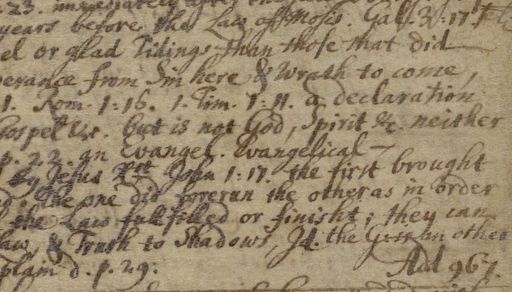 p. 23. immediately after the
years before the Law of Moses. Gal. 3. 17.
el or glad Tidings than those that did
erance from Sin here & Wrath to come,
1. Rom. 1:16. 1. Tim. 1:11. a declaration
Gospel &c. but is not God, Spirit &c. neither
p. 22. an Evangel. Evangelical
by Jesus Xst John 1:17. the first brought
d. The one did forerun the other as in order
d the Law fulfilled or finisht; they can
Law, & Truth to Shadows, Id. the Gos an other
plain'd. p. 29: Ad 967.